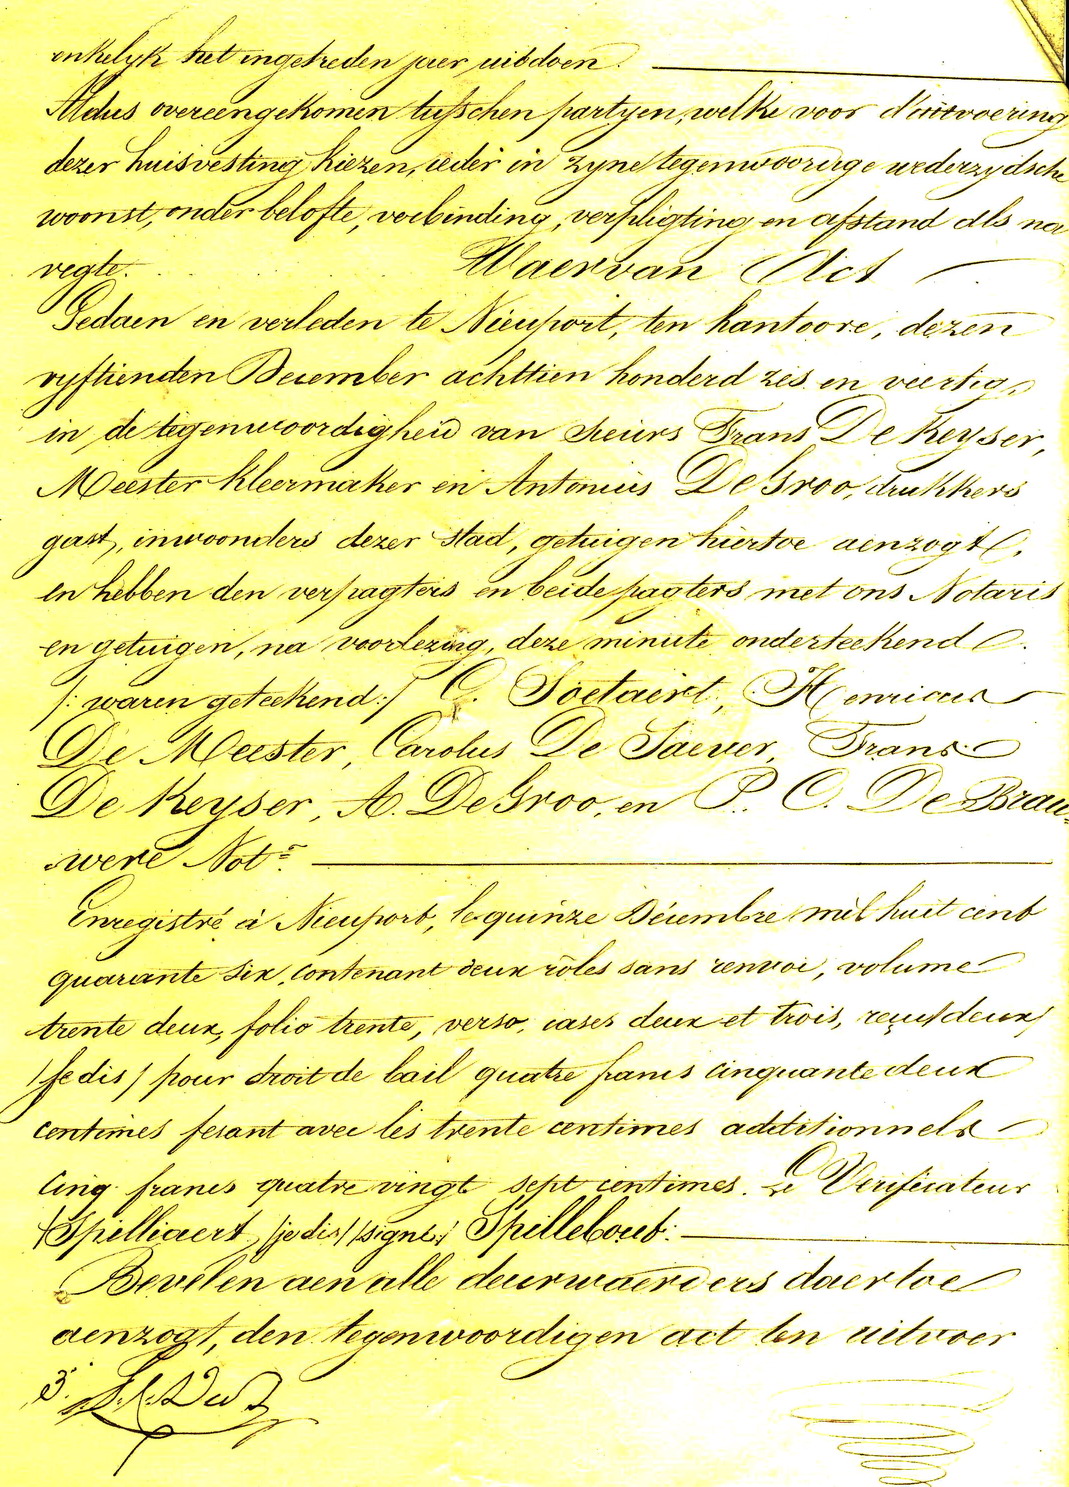 enkelyk het ingetreden jaer, uitdoen.
Aldus overeengekomen tusschen partyen, welke voor d'uitvoering
dezer huisvesting kiezen, ieder in zyne tegenwoordige wederzydsche
woonst, onder belofte, verbinding, verpligting en afstand als na
regte. Waervan Act
Gedaen en verleden te Nieuport, ten kantoore, dezen
vyftienden December achttien honderd zes en veertig,
in de tegenwoordigheid van sieurs Frans De Keyser,
Meester kleermaker en Antonius De Groo, drukkers
gast, inwoonders dezer stad, getuigen hiertoe aenzogt,
en hebben den verpagters en beide pagters met ons Notaris
en getuigen, na voorlezing, deze minute onderteekend.
/: waren geteekend:/ C. Soetaert, Henricus
De Meester, Carolus De Saever, Frans
De Keyser, A. De Groo, en P. C. De Brau=
were Not.r
Enregistré à Nieuport, le quinze Décembre mil huit cent
quarante six, contenant deux rôles sans renvoi, volume
trente deux, folio trente, verso, cases deux et trois, reçu /deux/
/je dis/ pour droit de bail quatre francs cinquante deux
centimes fesant avec les trente centimes additionnels
cinq francs quatre vingt sept centimes. Le Vérificateur
/Spilliaert, /je dis/ /signé/ Spillebout:
Bevelen aen alle deurwaerders daertoe
aenzogt, den tegenwoordigen act ten uitvoer
3.